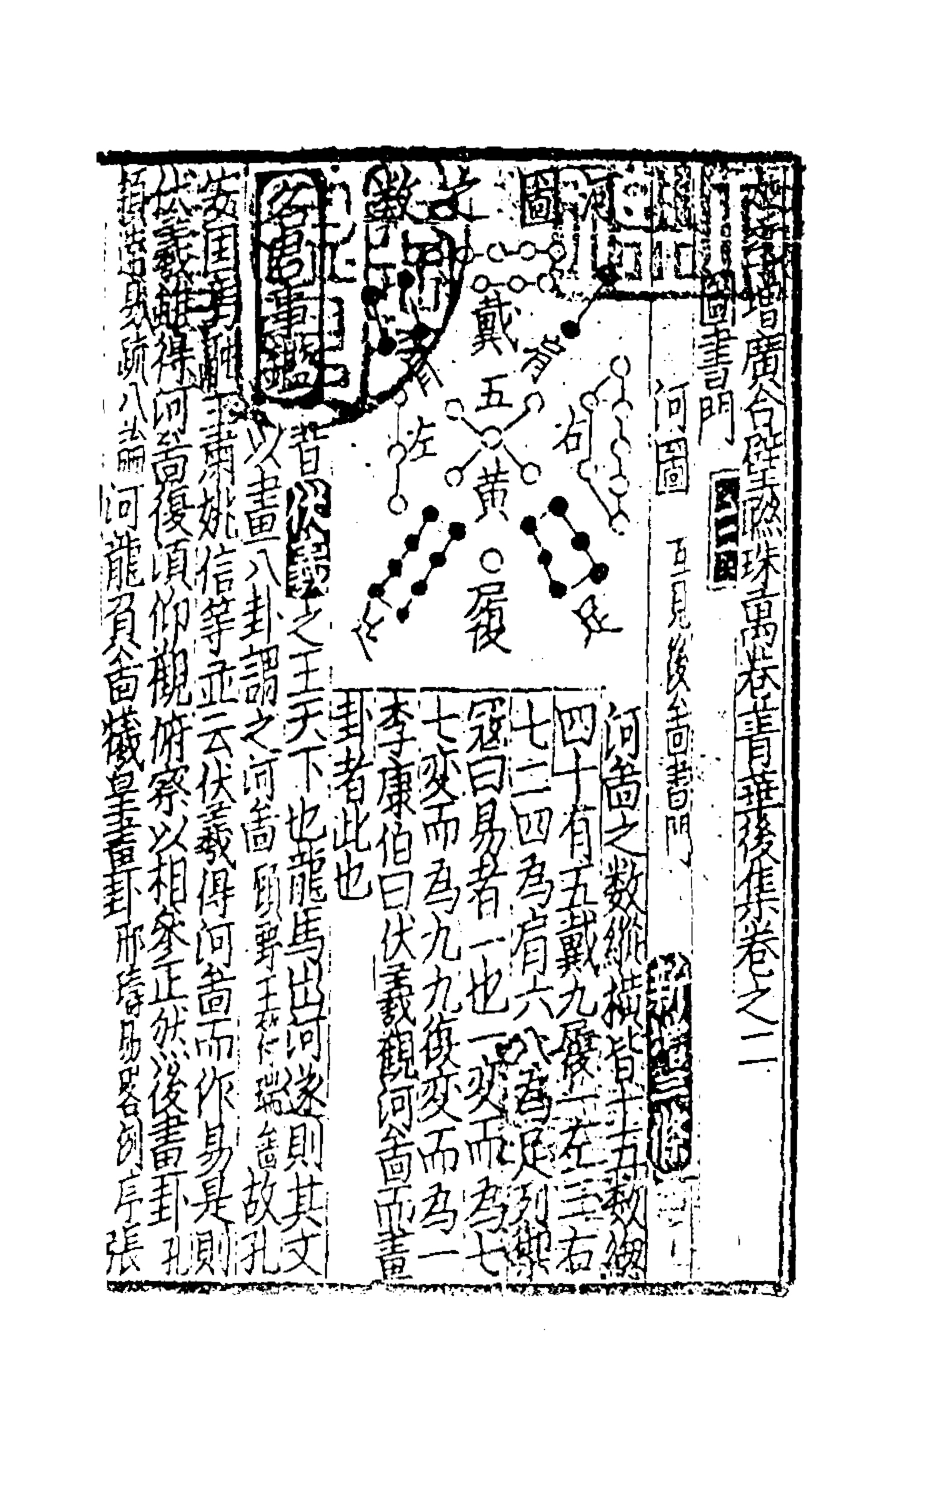 增廣合璧聯珠萬卷菁華後集卷之二
圖書門
河圖 互見後啚書門 新增三條
河圖
文
數
戴
九
肩
肩
右
左
五
黃
足
足
履
河啚之数縱橫皆十五数緫
四十有五戴九履一左三右
七二四為肩六八為足列禦
冦曰易者一也一変而為七
七変而為九九復変而為一
李康伯曰伏羲觀河啚而畫
卦者此也
名君事鑑
昔伏羲之王天下也龍馬出河遂則其文
以畫八卦謂之河啚 顧野王符瑞啚 故孔
安国馬融王肅姚信等並云伏羲得河啚而作易是則
伏羲雖得河啚復須仰觀俯察以相參正然後畫卦 孔
頴逹易疏八論 河龍負啚犧皇畫卦 邢璹易畧例序 張